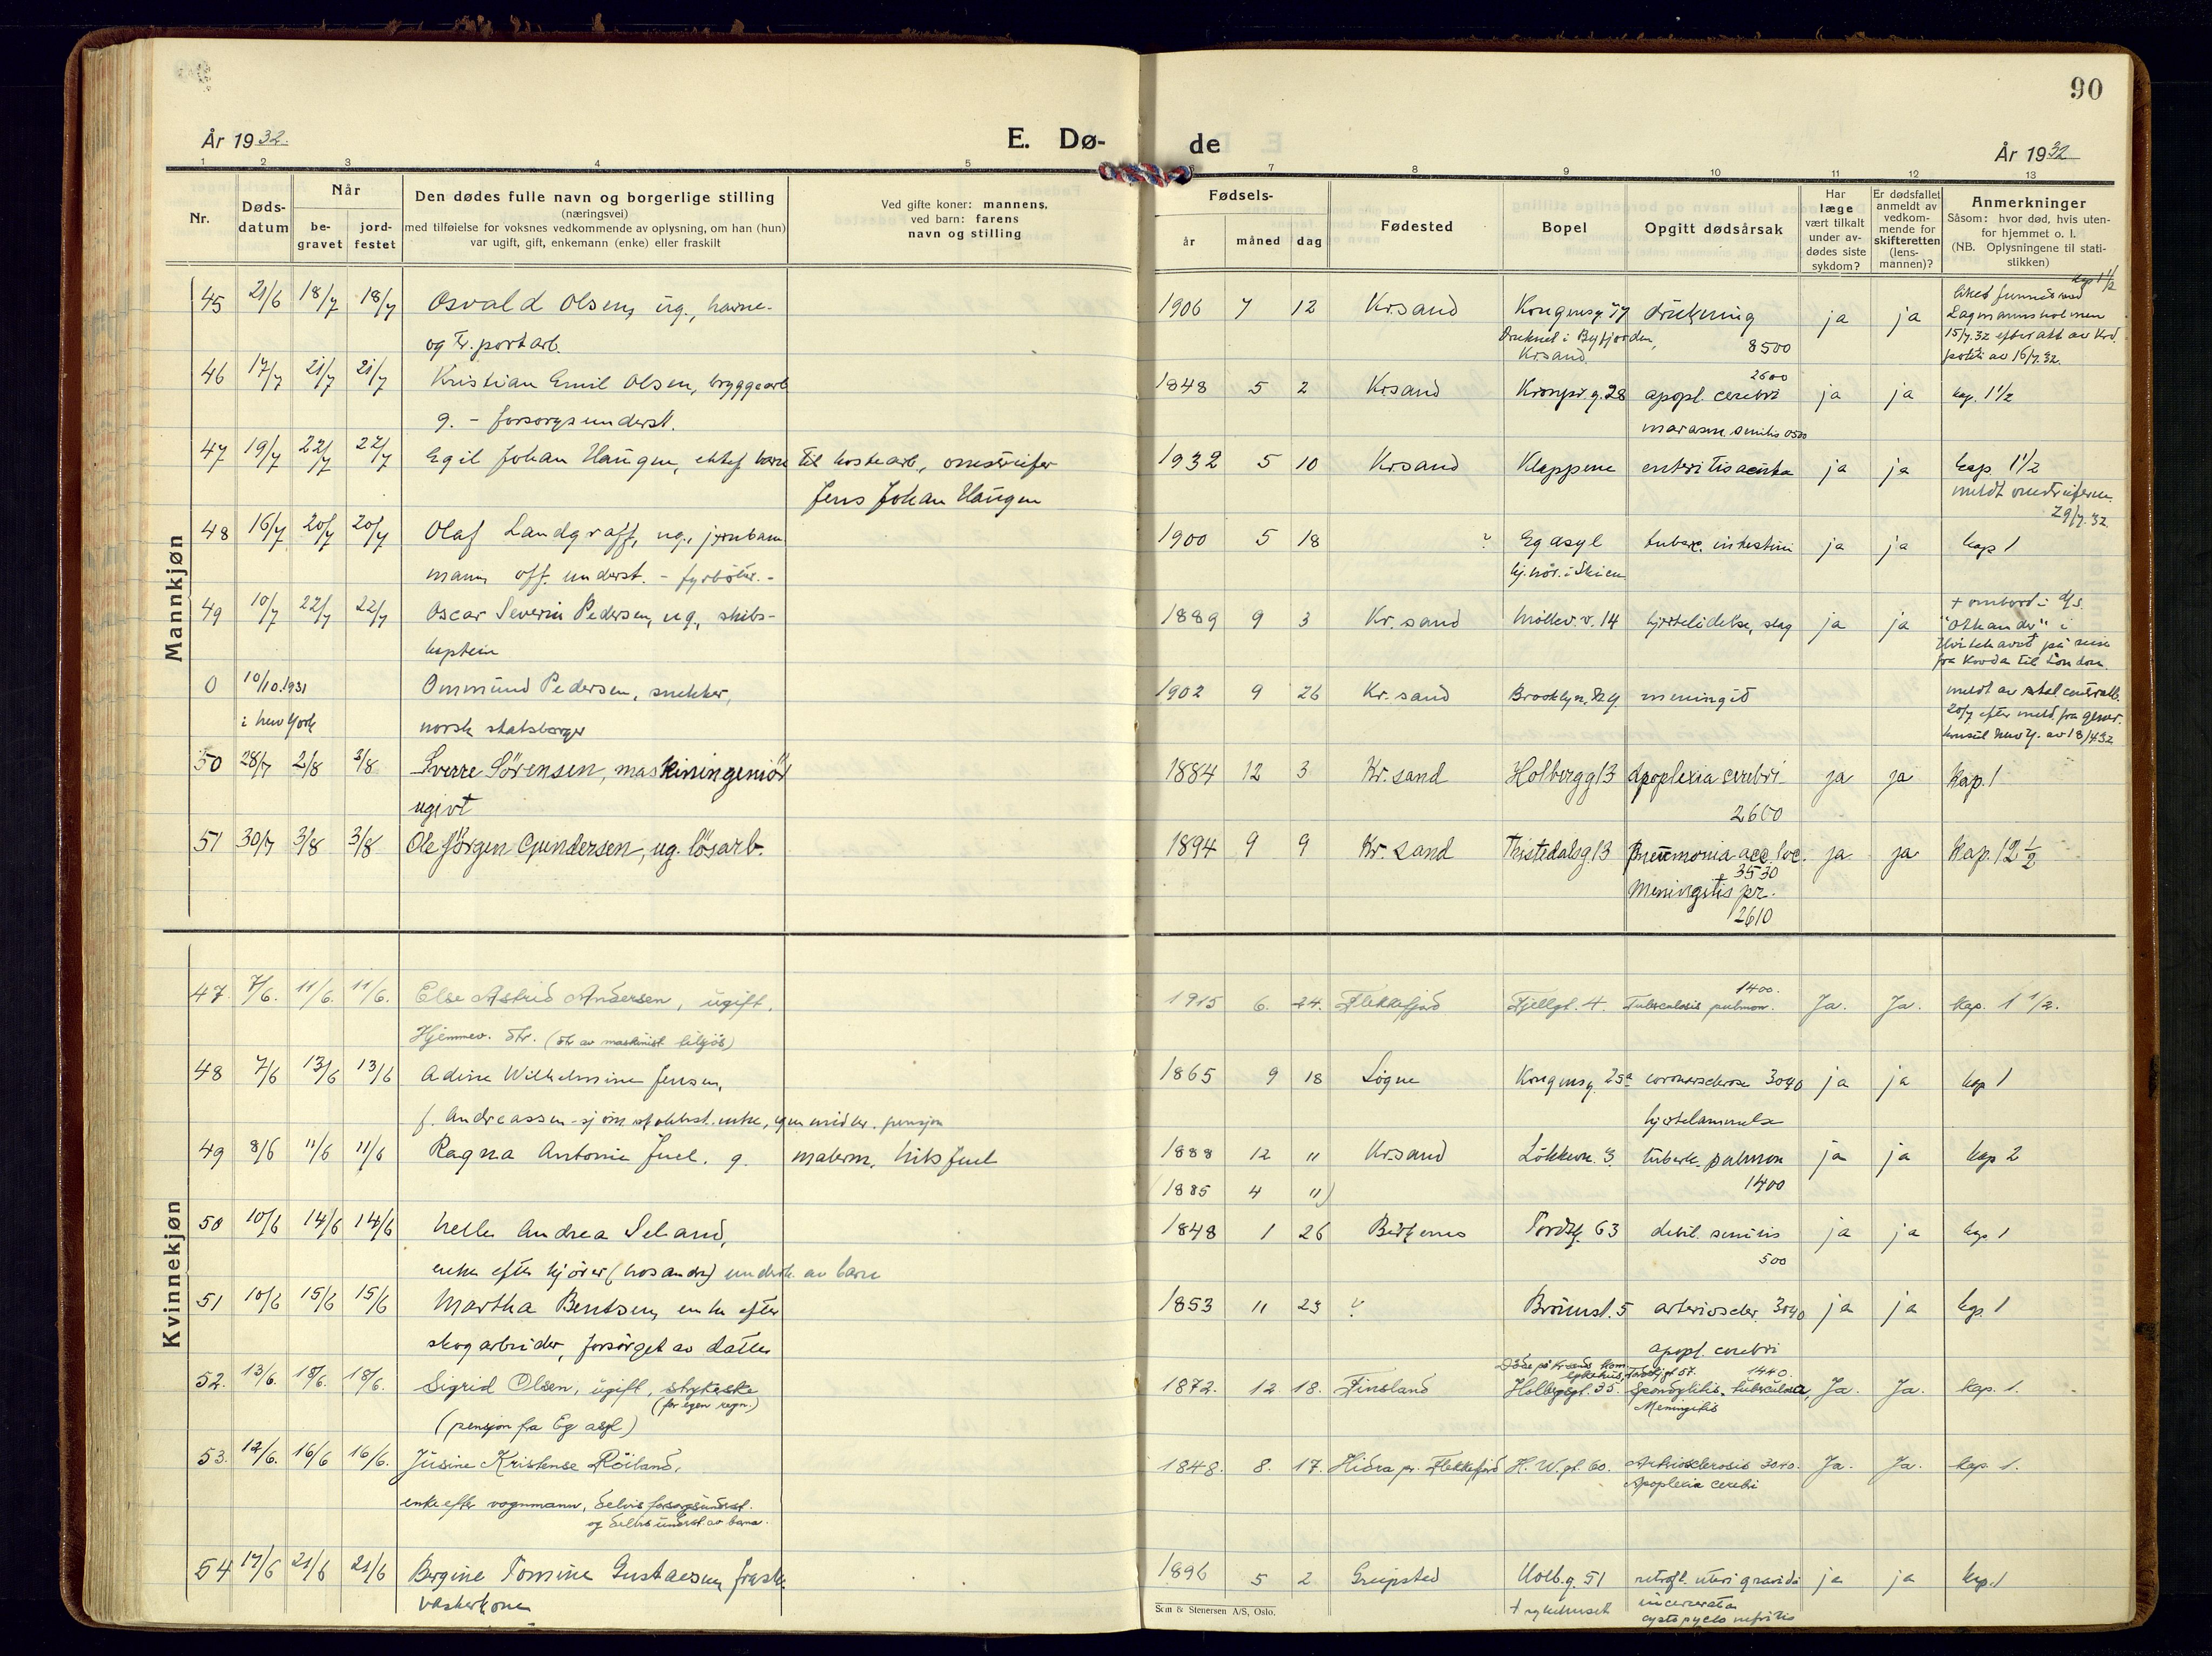 90
År 1932.
E. Dø-
de
År 1932
1 2 3 4 5 7 8 9 10 11 12 13
Nr.
Døds-
datum
Når
be-
gravet
jord-
festet
Den dødes fulle navn og borgerlige stilling
(næringsvei)
med tilføielse for voksnes vedkommende av oplysning, om han (hun)
var ugift, gift, enkemann (enke) eller fraskilt
Ved gifte koner: mannens,
ved barn: farens
navn og stilling
Fødsels-
år måned dag
Fødested
Bopel
Opgitt dødsårsak
Har
læge
vært tilkalt
under av-
dødes siste
sykdom?
Er dødsfallet
anmeldt av
vedkom-
mende for
skifteretten
(lens-
mannen)?
Anmerkninger
Såsom: hvor død, hvis uten-
for hjemmet o. l.
(NB. Oplysningene til stati-
stikken)
Mannkjøn
45 21/6 18/7 18/7 Osvald Olsen, ug., havne- 1906 7 12 Krsand Kongensg. drukning ja ja kap 1 1/2
og Tr. port arb. Druknet i Byfjorden, Krsand. 8500
liket funnet ved
Lagmannsholmen
15/7.32 efter att av Krs.
politi av 16/7.32.
46 17/7 21/7 21/7 Kristian Emil Olsen, bryggearb 1848 5 2 Krsand Kronpr.g. 28 apopl. cerebri 2600 ja ja kap. 1 1/2
g. - forsorgsunderst. marasm. senilis 0500
47 19/7 22/7 22/7 Egil Johan Haugen, ektef. barn til 1932 5 10 Krsand Klappene enteritis acuta ja ja kap 1 1/2
Jens Johan Haugen
29/7.32.
48 16/7 20/7 20/7 Olaf Landgraff, ug., jernbane 1900 5 18 ? Eg asyl tuberc. intestini ja ja kap 1
mann off. underst. - fyrbøter. - hj.hør. i Skien
49 10/7 22/7 22/7 Oscar Severin Pedersen, ug., skibs- 1889 9 3 Kr.sand Møllev. v. 14 hjertelidelse, slag ja ja + ombord i d/s.
kaptein
Hvitehavet på reise
fra Kovda til London.
0 10/10.1931 Ommund Pedersen, snekker, 1902 9 26 Kr.sand Brooklyn. N.Y meningit
i New York norsk statsborger
meldt av stat. centralb.
20/7 efter meld. fra gener.
konsul New Y. av 18/4 32
50 28/7 2/8 2/8 Sverre Sörensen, maskiningeniør 1884 12 3 Kr.sand Holbergg 13 Apoplexia cerebri ja ja Kap. 1
ugivt 2600
51 30/7 3/8 3/8 Ole Jörgen Gundersen, ug. lösarb. 1894 9 9 Kr.sand Thistedalsg. 13 Pneumonia acc. loc. ja ja Kap. 1 2 1/2
+ 3530
Meningitis pr.
2610
Kvinnekjøn
47. 7/6. 11/6. 11/6. Else Astrid Andersen, ugift. 1915 6. 24. Flekkefjord Fjellgt. 4. 1400. Tuberculosis pulmon. Ja. Ja. Kap. 1 1/2.
Hjemmev. dtr. (dtr av maskinist tilsjös)
48 7/6 13/6 13/6 Adine Wilhelmine Jensen, 1865 9 18 Søgne Kongensg. 25a coronarsclerose 3040 ja ja kap 1
f. Andreassen - enke, egne midler. pensjon hjertelammelse
49 8/6 11/6 11/6 Ragna Antonie Juel. g. malerm. Nils Juel 1888 12 11 Krsand Løkkev. 3 tuberk. pulmon ja ja kap 2
(1885 4 11) 1400
50 10/6 14/6 14/6 Nelle Andrea Seland, 1848 1 26 Birkenes Tordsg. 63 debil. senilis ja ja kap 1
enke efter kjører (hos andre) underh. av barn 500
51 10/6 15/6 15/6 Martha Bentsen, enke efter 1853 11 23 ? Brönnst. 5 arterioscler. 3040 ja ja kap. 1
skogarbeider, forsörget av datter apopl. cerebri
52. 13/6. 18/6. 18/6. Sigrid Olsen, ugift, strykerske 1872. 12 18. Finsland Döde på Krsands kom. sykehus, Holbergsgt. 35. 1440. Spondylitis tuberculosa, Ja. Ja. kap. 1.
(for egen regn.) Meningitis
(pensjon fra Eg asyl)
53. 12/6. 16/6 16/6. Jusine Kristense Röiland, 1848. 8. 17. Hidra pr. Flekkefjord H. W. gt. 60. Arteriosclerosis 3040. Ja. Ja. kap. 1.
enke efter vognmann, delvis forsorgsunderst. Apoplexia cerebri
og delvis underst. av barna.
54 17/6 21/6 21/6 Bergine Tomine Gustavsen, fraskilt 1896 5 2 Greipsted Holb.g. 51 retrofl. uteri gravidi ja ja kap. 1
vaskerkone + sykehuset incarcerata
cysto pyelo nefritis
Sem & Stenersen A/S, Oslo.